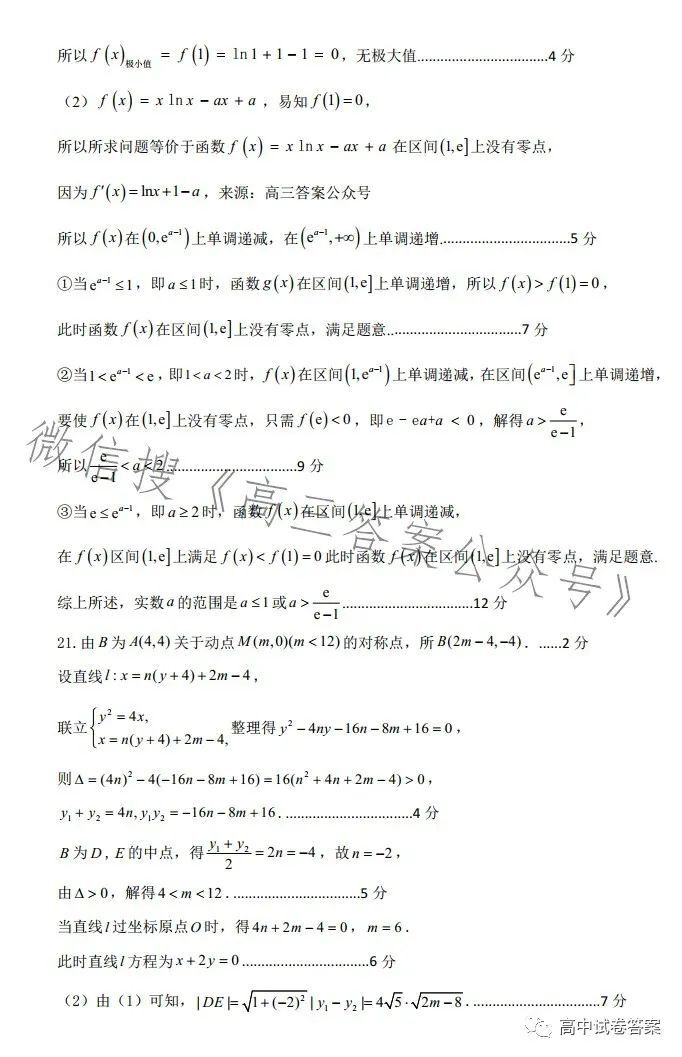 所以 f(x)极小值 = f(1) = ln1 + 1 − 1 = 0，无极大值..................................4 分
（2）f(x) = x ln x − ax + a ，易知 f(1)=0，
所以所求问题等价于函数 f(x) = x ln x − ax + a 在区间(1,e]上没有零点，
因为 f′(x)=lnx+1−a，来源：高三答案公众号
所以 f(x)在(0,e^{a−1})上单调递减，在(e^{a−1},+∞)上单调递增..................................5 分
①当 e^{a−1} ≤1，即 a≤1时，函数 g(x)在区间(1,e]上单调递增，所以 f(x)> f(1)=0，
此时函数 f(x)在区间(1,e]上没有零点，满足题意..................................7 分
②当1<e^{a−1}<e，即1<a<2时，f(x)在区间(1,e^{a−1})上单调递减，在区间(e^{a−1},e]上单调递增，
要使 f(x)在(1,e]上没有零点，只需 f(e)<0，即e－ea+a < 0，解得 a> e/(e−1)，
所以 e/(e−1) <a<2..................................9 分
③当 e≤e^{a−1}，即 a≥2时，函数 f(x)在区间(1,e]上单调递减，
在 f(x)区间(1,e]上满足 f(x)< f(1)=0此时函数 f(x)在区间(1,e]上没有零点，满足题意.
综上所述，实数 a 的范围是 a≤1或 a> e/(e−1) ..................................12 分
21. 由 B 为 A(4,4)关于动点 M(m,0)(m<12)的对称点，所 B(2m−4,−4)．......2 分
设直线 l : x = n(y+4)+2m−4，
联立{y²=4x, x=n(y+4)+2m−4, 整理得 y²−4ny−16n−8m+16=0，
则 Δ=(4n)²−4(−16n−8m+16)=16(n²+4n+2m−4)>0，
y₁+y₂=4n, y₁y₂=−16n−8m+16．..................................4 分
B 为 D, E 的中点，得 (y₁+y₂)/2 =2n=−4，故 n=−2，
由 Δ>0，解得 4<m<12．..................................5 分
当直线 l 过坐标原点 O 时，得 4n+2m−4=0，m=6．
此时直线 l 方程为 x+2y=0..................................6 分
（2）由（1）可知，|DE|=√(1+(−2)²)|y₁−y₂|=4√5·√(2m−8)．..................................7 分
微信搜《高三答案公众号》
高中试卷答案